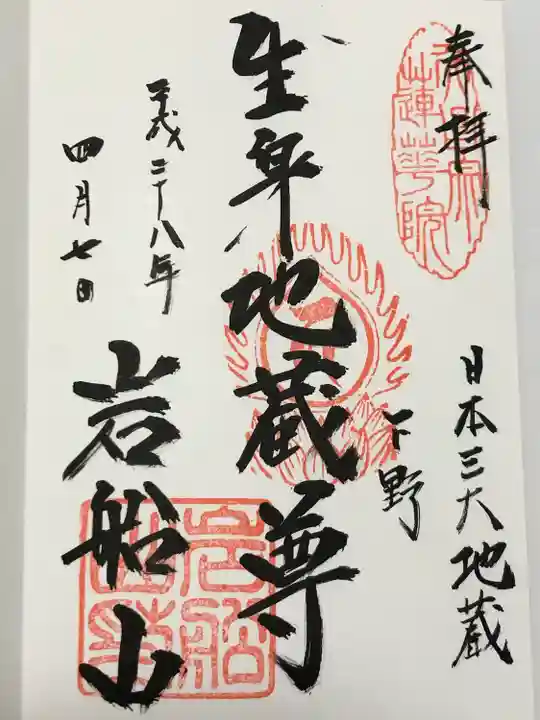 奉拝
蓮華院
日本三大地蔵
下野
生身地蔵尊
岩船山
平成二十八年
四月七日